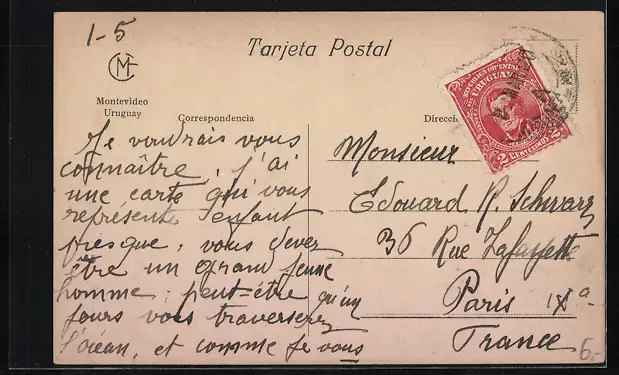 1-5
Tarjeta Postal
CM
Montevideo
Uruguay
Correspondencia
Direcció
REPUBLICA ORIENTAL
URUGUAY
2 CENTESIMOS 2
Je voudrais vous
connaître, j'ai
une carte qui vous
représente enfant
presque, vous devez
être un grand jeune
homme; peut-être qu'un
jours vous traverserez
l'océan, et comme je vous
Monsieur
Edouard R. Schwarz
36 Rue Lafayette
Paris IXa
France